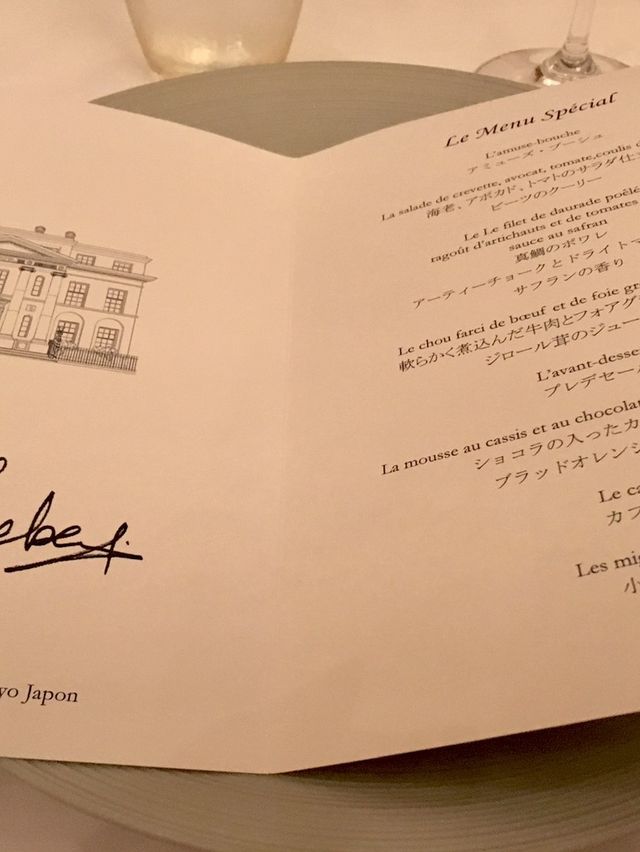 yo Japon
Le Menu Spécial
L'amuse-bouche
アミューズ・ブーシュ
La salade de crevette, avocat, tomate,coulis d
海老、アボカド、トマトのサラダ仕立
ビーツのクーリー
Le Le filet de daurade poêlé
ragoût d'artichauts et de tomates
sauce au safran
真鯛のポワレ
アーティーチョークとドライトマ
サフランの香り
Le chou farci de bœuf et de foie gr
軟らかく煮込んだ牛肉とフォアグ
ジロール茸のジュー
L'avant-desse
プレデセー
La mousse au cassis et au chocolat
ショコラの入ったカ
ブラッドオレンジ
Le ca
カフ
Les mig
小